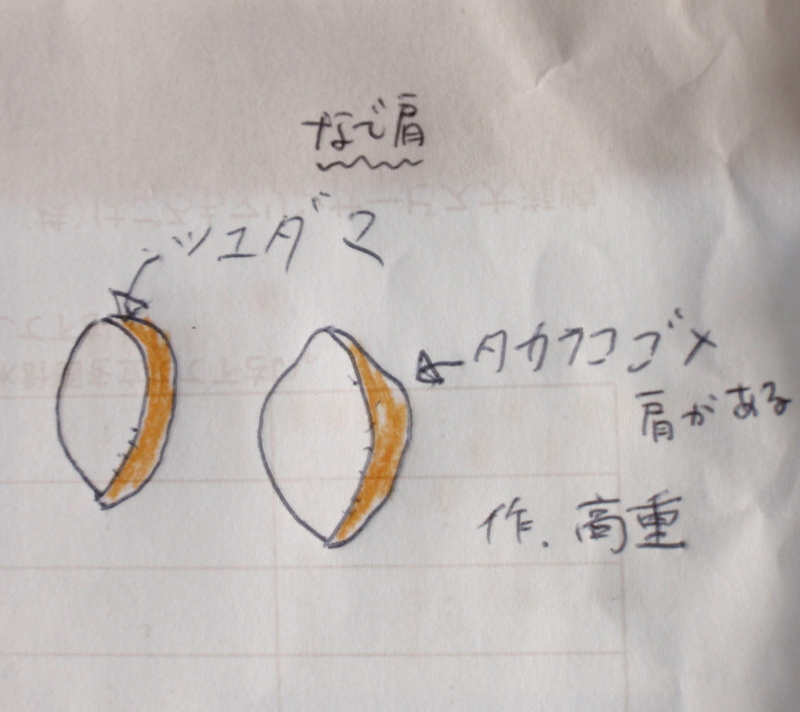 なで肩
ツユダマ
タカラコゴメ
肩がある
作.高重